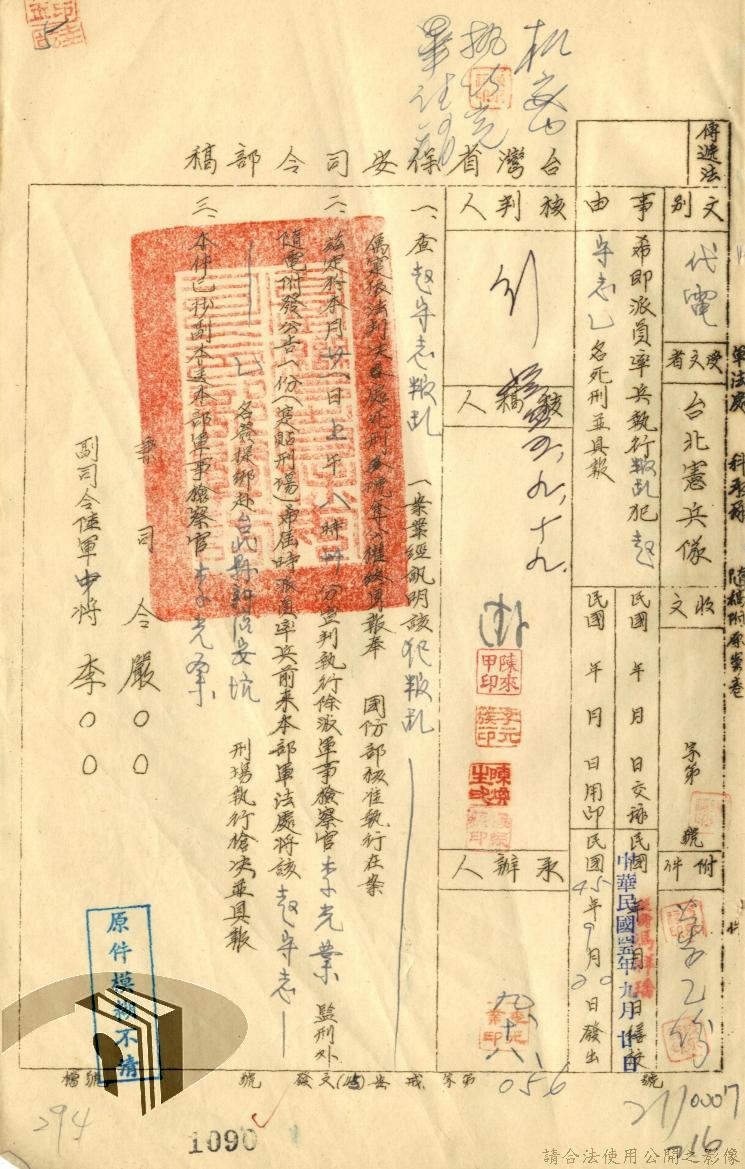 機密
台灣省保安司令部稿
傳遞法
文別
代電
受文者
台北憲兵隊
收文
字第
號
附件
事由
希即派員率兵執行叛亂犯趙
守志乙名死刑並具報
民國 年 月 日交辦
民國 年 月 日繕校
中華民國四五年九月廿日
民國 年 月 日用印
民國45年9月20日發出
核判人
核稿人
九、十九、
陳來甲印
承辦人
九、十八、
一、查趙守志叛亂 一案業經訊明該犯叛亂
屬實依法判決
處死刑
報奉 國防部核准執行在案
二、茲定於本月廿一日上午八時卅分宣判執行除派軍事檢察官李光業監刑外
隨電附發公告一份(交貼刑場)希屆時派員率兵前來本部軍法處將該趙守志
乙 名簽提綁赴台北縣新店安坑 刑場執行槍決並具報
三、本件已抄副本送本部軍事檢察官李光業
兼司令嚴○○
副司令陸軍中將李○○
軍法處
隨稿附原案卷
原件模糊不清
檔號
號
發文
安
戒
字第
056
號
294
1090
0007
216
請合法使用公開之影像